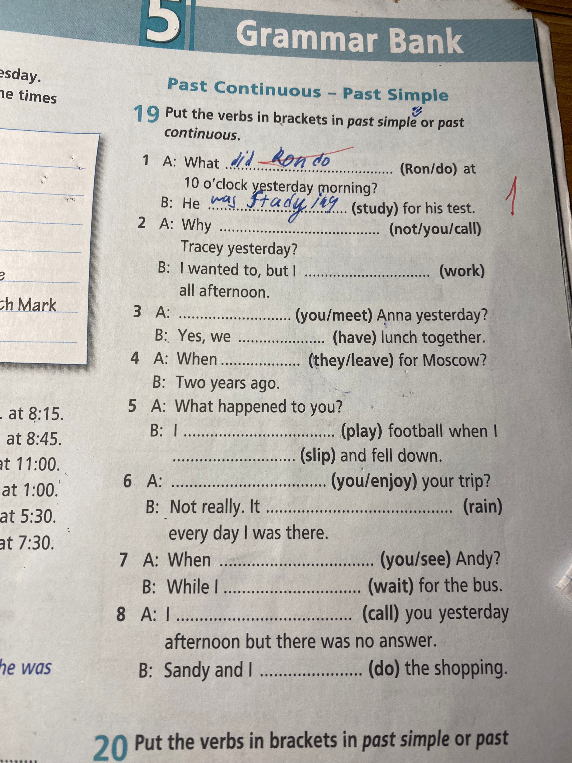 5 Grammar Bank
esday.
ne times
e
ch Mark
. at 8:15.
at 8:45.
at 11:00.
at 1:00.
at 5:30.
at 7:30.
he was
Past Continuous – Past Simple
19 Put the verbs in brackets in past simple or past
continuous.
1 A: What did Ron do (Ron/do) at
10 o'clock yesterday morning?
B: He was stadying (study) for his test.
1
2 A: Why .......... (not/you/call)
Tracey yesterday?
B: I wanted to, but I .......... (work)
all afternoon.
3 A: .......... (you/meet) Anna yesterday?
B: Yes, we .......... (have) lunch together.
4 A: When .......... (they/leave) for Moscow?
B: Two years ago.
5 A: What happened to you?
B: I .......... (play) football when I
.......... (slip) and fell down.
6 A: .......... (you/enjoy) your trip?
B: Not really. It .......... (rain)
every day I was there.
7 A: When .......... (you/see) Andy?
B: While I .......... (wait) for the bus.
8 A: I .......... (call) you yesterday
afternoon but there was no answer.
B: Sandy and I .......... (do) the shopping.
20 Put the verbs in brackets in past simple or past